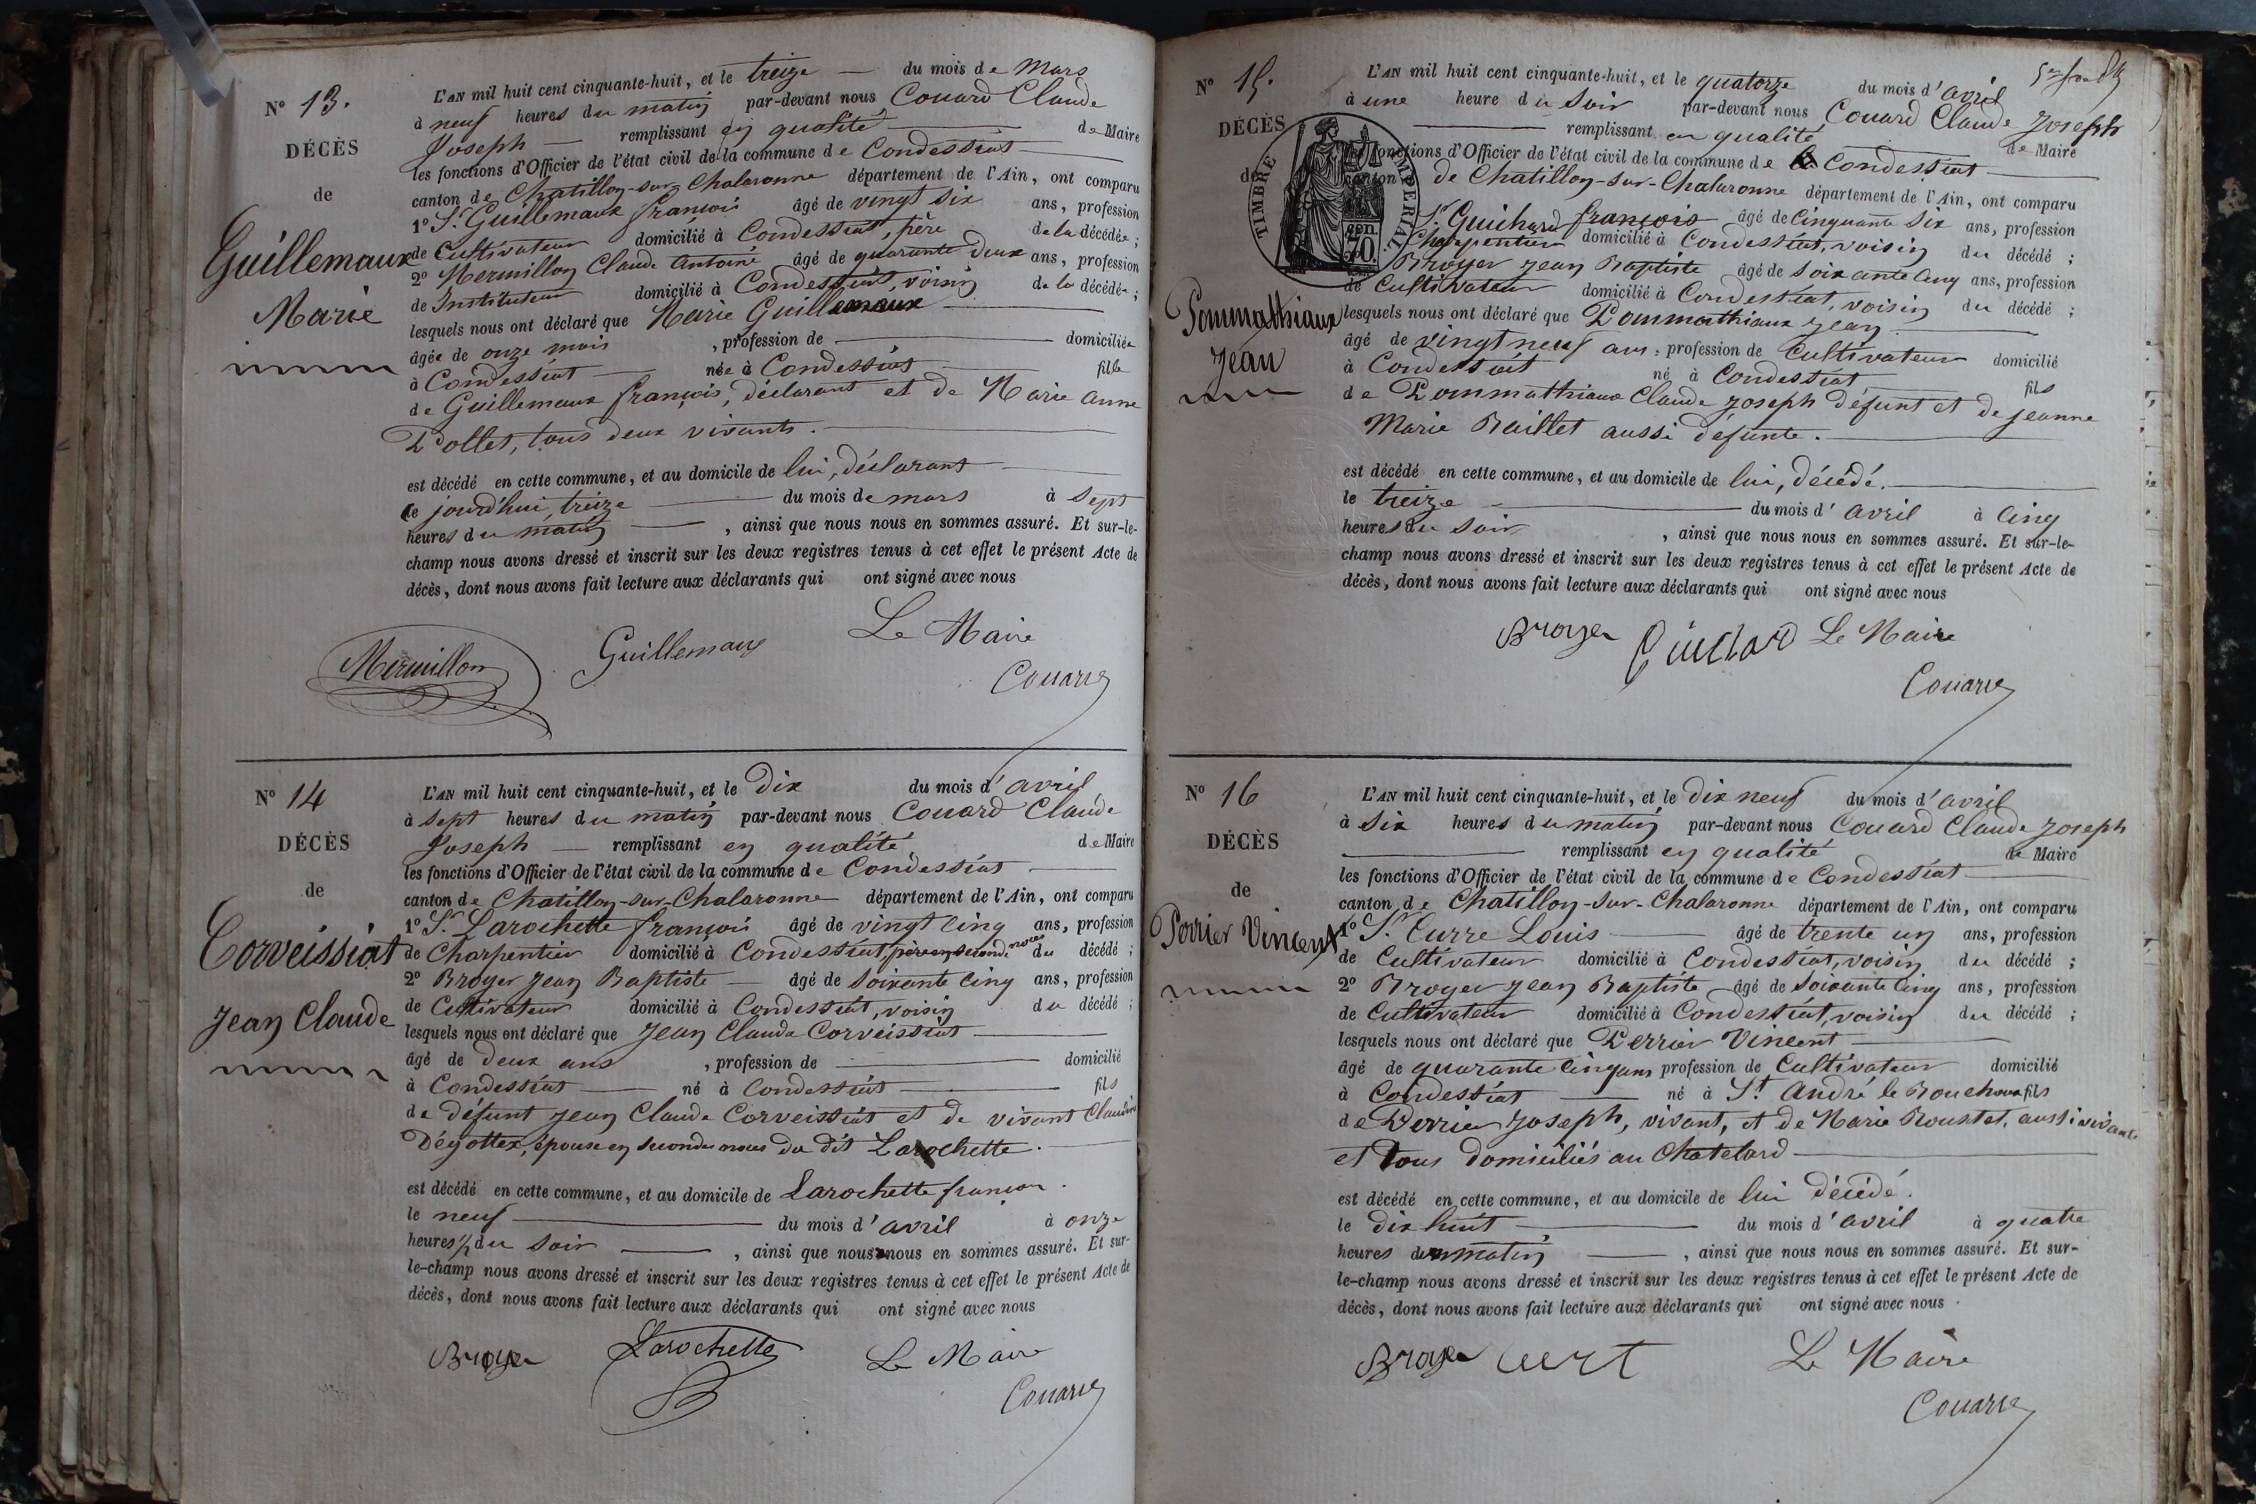 N° 13.
DÉCÈS
de
Guillemaux
Marie
L'AN mil huit cent cinquante-huit, et le treize du mois de Mars
à neuf heures du matin par-devant nous Couard Claude
Joseph remplissant en qualité de Maire
les fonctions d'Officier de l'état civil de la commune de Condessiat
canton de Chatillon-sur-Chalaronne département de l'Ain, ont comparu
1° Sr. Guillemaux françois âgé de vingt six ans, profession
de Cultivateur domicilié à Condessiat, père de la décédée ;
2° Mermillon Claude Antoine âgé de quarante deux ans, profession
de Instituteur domicilié à Condessiat, voisin de la décédée ;
lesquels nous ont déclaré que Marie Guillemaux
âgée de onze mois , profession de domiciliée
à Condessiat née à Condessiat fille
de Guillemaux françois, déclarant et de Marie Anne
Pollet, tous deux vivants.
est décédé en cette commune, et au domicile de lui, déclarant
le jourd'hui, treize du mois de mars à sept
heures du matin , ainsi que nous nous en sommes assuré. Et sur-le-
champ nous avons dressé et inscrit sur les deux registres tenus à cet effet le présent Acte de
décès, dont nous avons fait lecture aux déclarants qui ont signé avec nous
Mermillon Guillemaux Le Maire
Couard
N° 14
DÉCÈS
de
Corveissiat
Jean Claude
L'AN mil huit cent cinquante-huit, et le Dix du mois d'avril
à sept heures du matin par-devant nous Couard Claude
Joseph remplissant en qualité de Maire
les fonctions d'Officier de l'état civil de la commune de Condessiat
canton de Chatillon-sur-Chalaronne département de l'Ain, ont comparu
1° Sr. Larochette françois âgé de vingt cinq ans, profession
de Charpentier domicilié à Condessiat, père en seconde noces du décédé ;
2° Broyer Jean Baptiste âgé de soixante cinq ans, profession
de Cultivateur domicilié à Condessiat, voisin du décédé ;
lesquels nous ont déclaré que Jean Claude Corveissiat
âgé de deux ans , profession de domicilié
à Condessiat né à Condessiat fils
de défunt Jean Claude Corveissiat et de vivant Claudine
Dégottex, épouse en secondes noces du dit Larochette.
est décédé en cette commune, et au domicile de Larochette françois.
le neuf du mois d'avril à onze
heures 1/2 du soir , ainsi que nous nous en sommes assuré. Et sur-
le-champ nous avons dressé et inscrit sur les deux registres tenus à cet effet le présent Acte de
décès, dont nous avons fait lecture aux déclarants qui ont signé avec nous
Broyer Larochette Le Maire
Couard
N° 15.
DÉCÈS
de
TIMBRE IMPERIAL
70.
Pommathiaux
Jean
L'AN mil huit cent cinquante-huit, et le quatorze du mois d'avril
à une heure du soir par-devant nous Couard Claude Joseph
remplissant en qualité de Maire
les fonctions d'Officier de l'état civil de la commune de Condessiat
canton de Chatillon-sur-Chalaronne département de l'Ain, ont comparu
Sr. Guichard françois âgé de cinquante six ans, profession
Charpentier domicilié à Condessiat, voisin du décédé ;
Broyer Jean Baptiste âgé de soixante cinq ans, profession
de Cultivateur domicilié à Condessiat, voisin du décédé ;
lesquels nous ont déclaré que Pommathiaux Jean
âgé de vingt neuf ans, profession de Cultivateur domicilié
à Condessiat né à Condessiat fils
de Pommathiaux Claude Joseph défunt et de Jeanne
Marie Baillet aussi défunte.
est décédé en cette commune, et au domicile de lui, décédé.
le treize du mois d'avril à cinq
heures du soir , ainsi que nous nous en sommes assuré. Et sur-le-
champ nous avons dressé et inscrit sur les deux registres tenus à cet effet le présent Acte de
décès, dont nous avons fait lecture aux déclarants qui ont signé avec nous
Broyer Guichard Le Maire
Couard
N° 16
DÉCÈS
de
Perrier Vincent
L'AN mil huit cent cinquante-huit, et le dix neuf du mois d'avril
à six heures du matin par-devant nous Couard Claude Joseph
remplissant en qualité de Maire
les fonctions d'Officier de l'état civil de la commune de Condessiat
canton de Chatillon-sur-Chalaronne département de l'Ain, ont comparu
1° Sr. Curre Louis âgé de trente un ans, profession
de Cultivateur domicilié à Condessiat, voisin du décédé ;
2° Broyer Jean Baptiste âgé de soixante cinq ans, profession
de Cultivateur domicilié à Condessiat, voisin du décédé ;
lesquels nous ont déclaré que Perrier Vincent
âgé de quarante cinq ans profession de Cultivateur domicilié
à Condessiat né à St. André le Bouchoux fils
de Perrier Joseph, vivant, et de Marie Roustet, aussi vivante
et tous domiciliés au Chatelard
est décédé en cette commune, et au domicile de lui décédé.
le dix huit du mois d'avril à quatre
heures du matin , ainsi que nous nous en sommes assuré. Et sur-
le-champ nous avons dressé et inscrit sur les deux registres tenus à cet effet le présent Acte de
décès, dont nous avons fait lecture aux déclarants qui ont signé avec nous
Broyer Le Maire
Couard